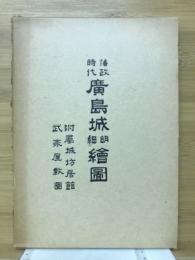 藩政時代 廣島城明細繪圖
附屬城坊居館
武家屋敷圖